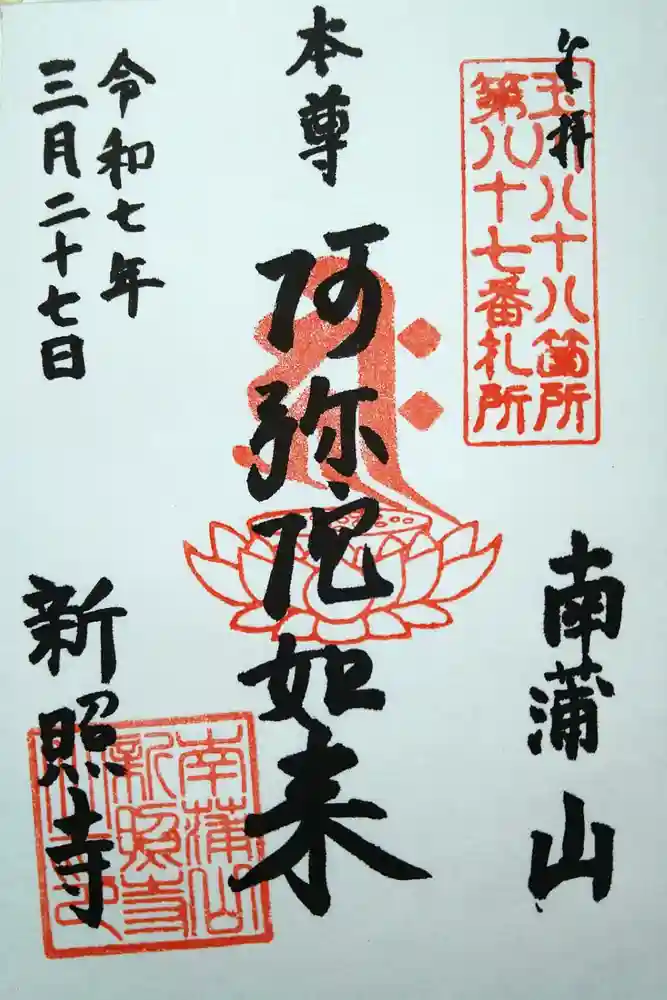 奉拝
玉川八十八箇所
第八十七番札所
南蒲山
本尊
阿弥陀如来
令和七年
三月二十七日
新照寺
南蒲山
新照寺